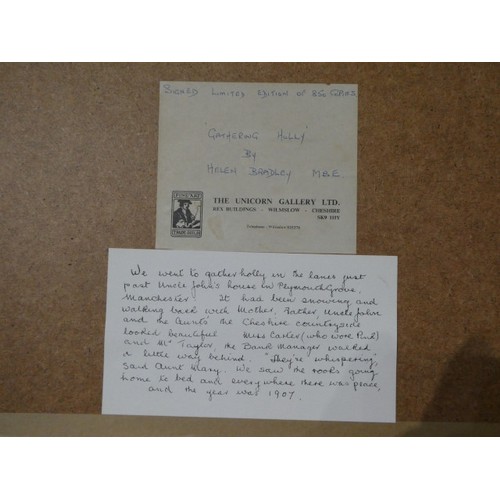 SIGNED LIMITED EDITION OF 850 COPIES
'GATHERING HOLLY'
BY
HELEN BRADLEY MBE.
FINE ART
THE UNICORN GALLERY LTD.
REX BUILDINGS - WILMSLOW - CHESHIRE
SK9 1HY
Telephone: Wilmslow
We went to gather holly in the lanes just
past Uncle John's house in Plymouth Grove,
Manchester. It had been snowing, and
walking back with Mother, Father, Uncle John
and the Aunts the Cheshire countryside
looked beautiful. Miss Carter (who wore Pink)
and Mr Taylor, the Bank Manager walked
a little way behind. "They're whispering",
said Aunt Mary. We saw the rooks going
home to bed and everywhere there was peace,
and the year was 1907.